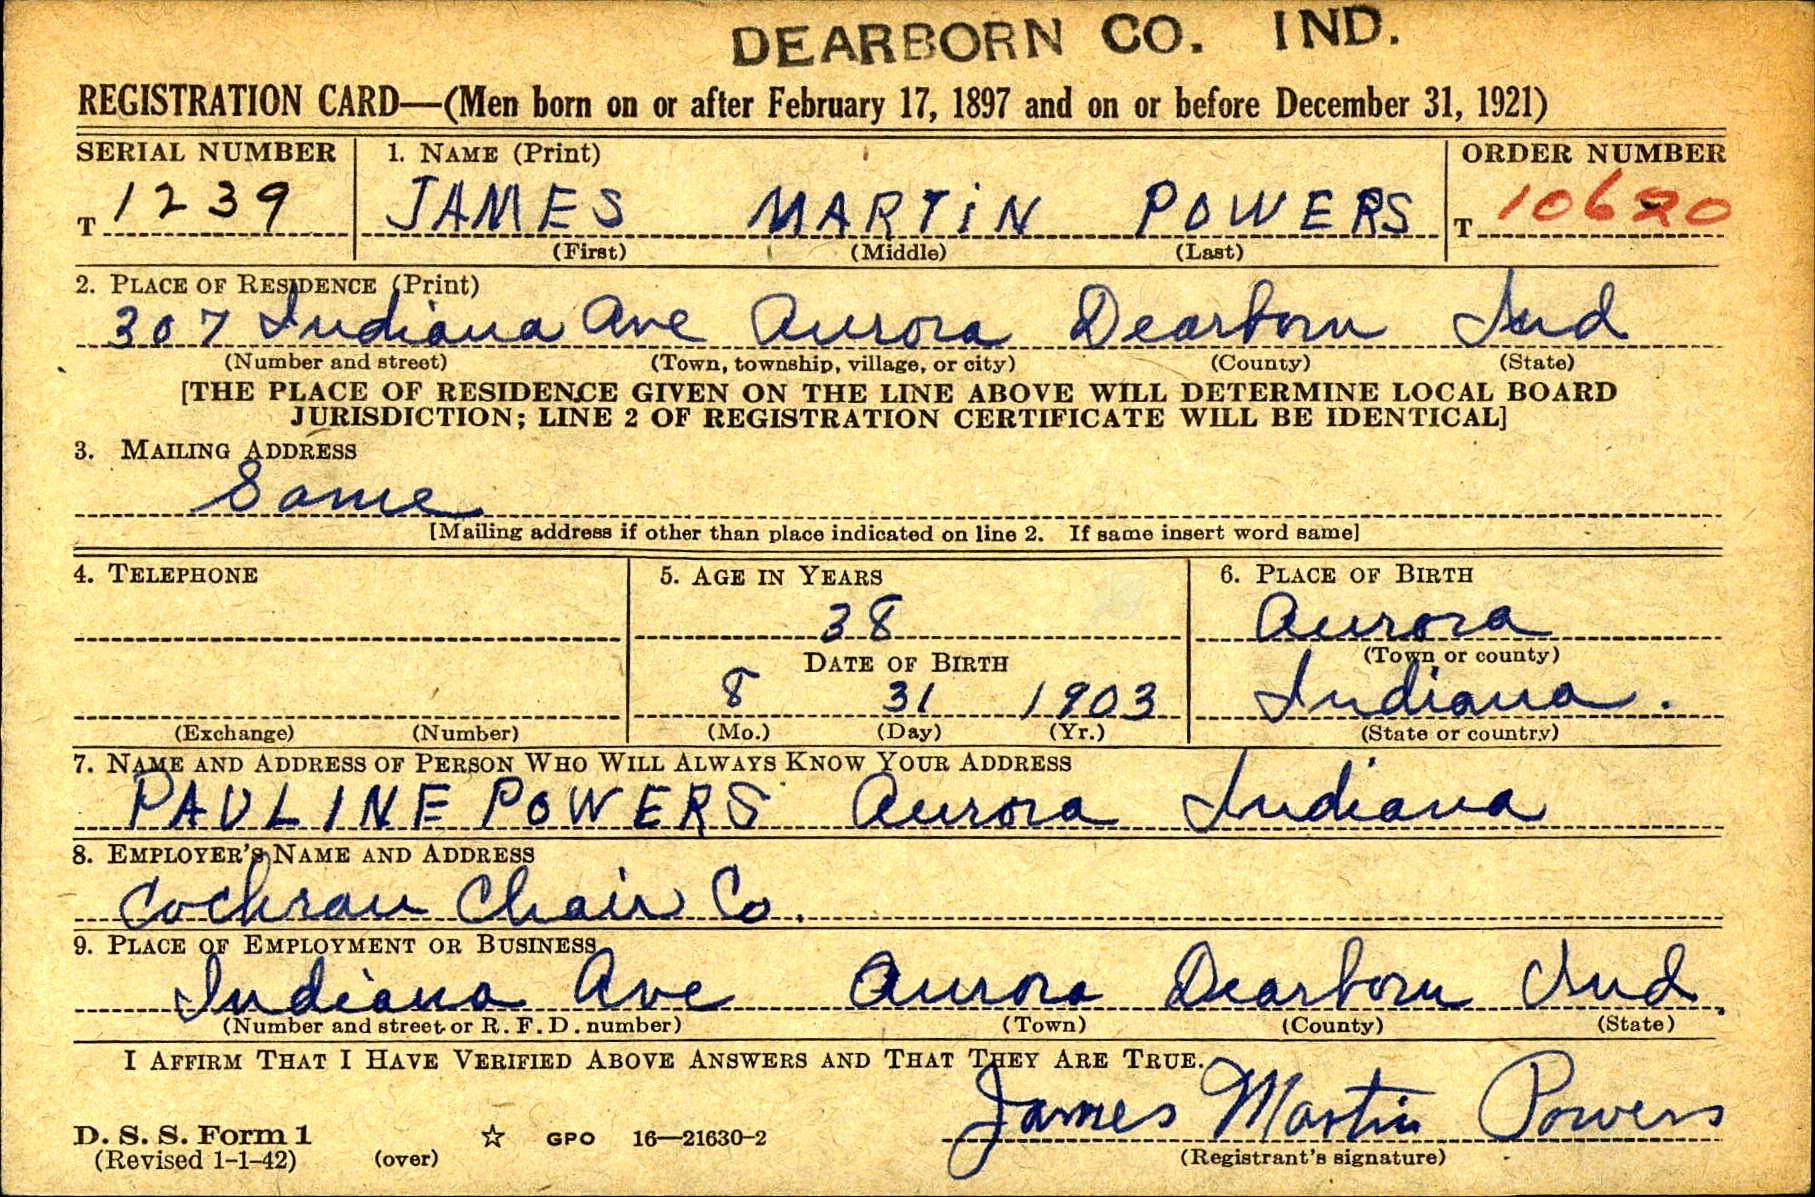 DEARBORN CO. IND.
REGISTRATION CARD—(Men born on or after February 17, 1897 and on or before December 31, 1921)
SERIAL NUMBER 1. NAME (Print) ORDER NUMBER
T 1239 JAMES MARTIN POWERS T 10620
(First) (Middle) (Last)
2. PLACE OF RESIDENCE (Print)
307 Indiana Ave Aurora Dearborn Ind
(Number and street) (Town, township, village, or city) (County) (State)
[THE PLACE OF RESIDENCE GIVEN ON THE LINE ABOVE WILL DETERMINE LOCAL BOARD
JURISDICTION; LINE 2 OF REGISTRATION CERTIFICATE WILL BE IDENTICAL]
3. MAILING ADDRESS
Same
[Mailing address if other than place indicated on line 2. If same insert word same]
4. TELEPHONE 5. AGE IN YEARS 6. PLACE OF BIRTH
38 Aurora
DATE OF BIRTH (Town or county)
8 31 1903 Indiana.
(Exchange) (Number) (Mo.) (Day) (Yr.) (State or country)
7. NAME AND ADDRESS OF PERSON WHO WILL ALWAYS KNOW YOUR ADDRESS
PAULINE POWERS Aurora Indiana
8. EMPLOYER'S NAME AND ADDRESS
Cochran Chair Co.
9. PLACE OF EMPLOYMENT OR BUSINESS
Indiana Ave Aurora Dearborn Ind.
(Number and street or R. F. D. number) (Town) (County) (State)
I AFFIRM THAT I HAVE VERIFIED ABOVE ANSWERS AND THAT THEY ARE TRUE.
James Martin Powers
D. S. S. Form 1 ☆ GPO 16—21630-2
(Revised 1-1-42) (over) (Registrant's signature)